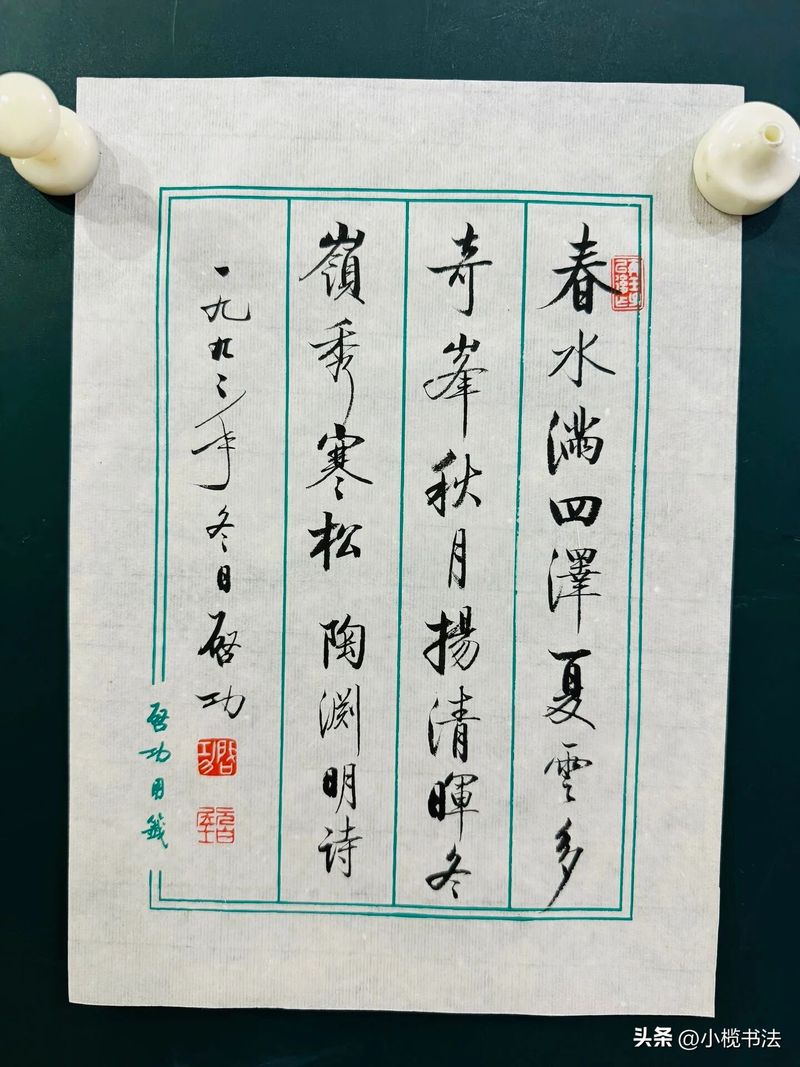 春水滿四澤夏雲多
奇峯秋月揚清暉冬
嶺秀寒松 陶淵明詩
一九九二年冬日啓功
啓功用箋
头条 @小榄书法